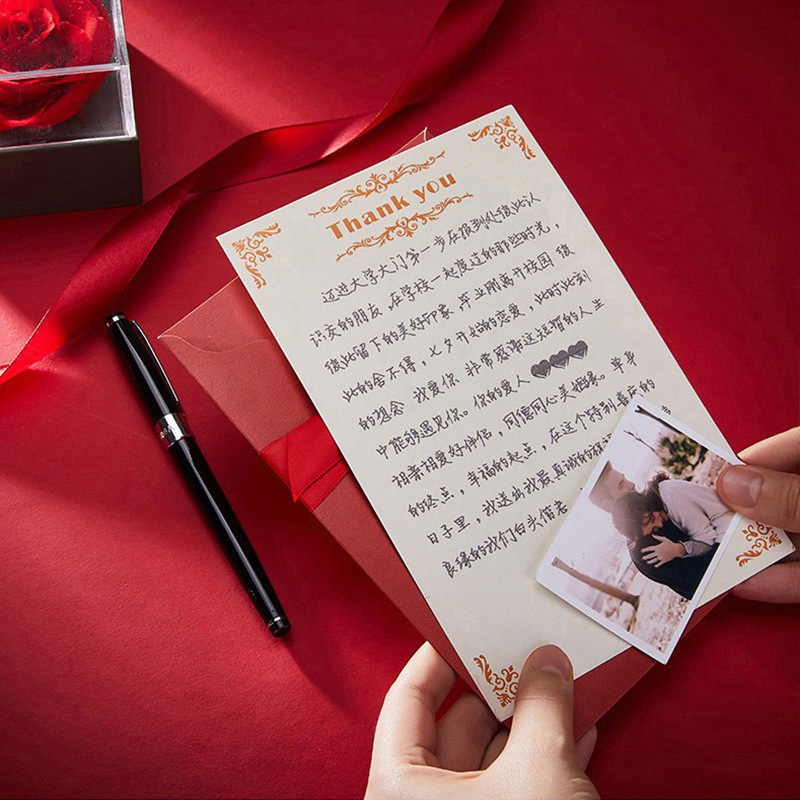 Thank you
迈进大学大门第一步在报到处彼此认
识交的朋友,在学校一起度过的那些时光,
彼此留下的美好印象 毕业刚离开校园 彼
此的舍不得,七夕开始的恋爱,此时此刻
的想念 我爱你 非常感谢这短暂的人生
中能够遇见你。你的爱人
相亲相爱好伴侣,同德同心美姻缘。单身
的终点,幸福的起点,在这个特别喜庆的
日子里,我送出我最真诚的祝
良缘的我们白头偕老